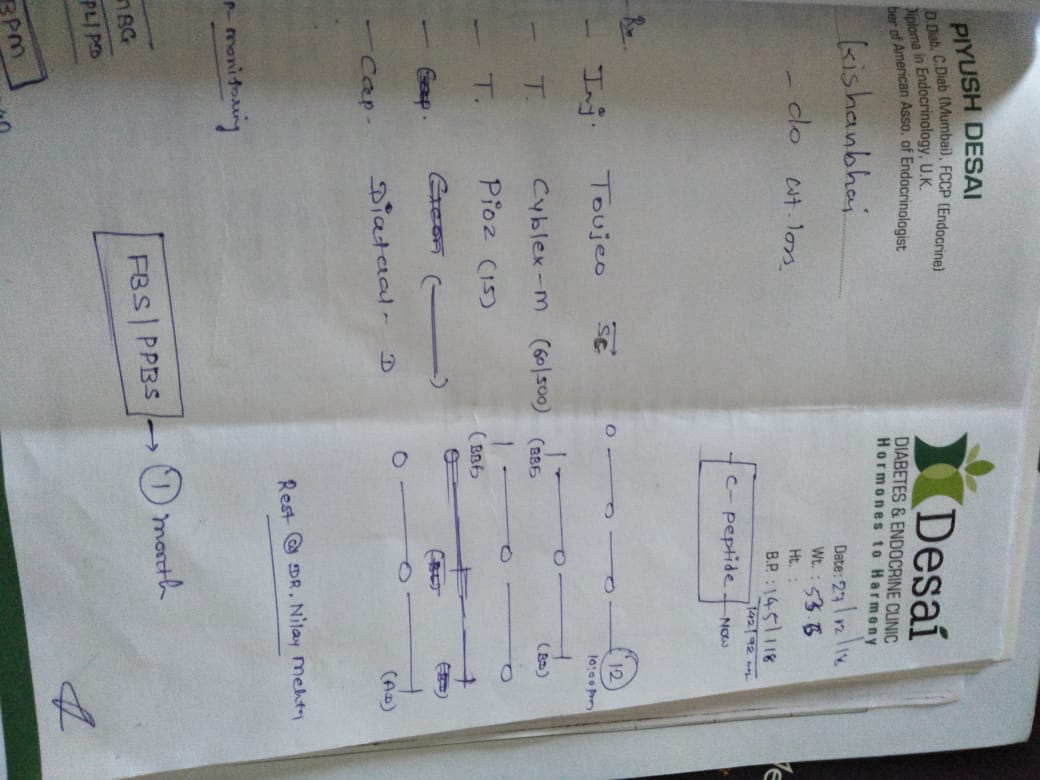 PIYUSH DESAI
.D.Diab, C.Diab (Mumbai), FCCP (Endocrine)
Diploma in Endocrinology, U.K.
ber of American Asso. of Endocrinologist
Desai
DIABETES & ENDOCRINE CLINIC
Hormones to Harmony
Kishanbhai
Date: 27/12/18
Wt. : 53.
Ht. :
B.P. : 145/118
142/92
- do wt. loss
C-peptide - Now
Rx.
- Inj. Toujeo SC 0 — 0 — 0 — 12
10:00 pm
- T. Cyblex-M (60/500) 1 — 0 — 1
(BBF) (BD)
- T. Pioz (15) 1 — 0 — 0
(BBF)
- Cap.
- Cap. Diataal-D 0 — 0 — 1
(AD)
Rest @ DR. Nilay Mehta
- monitoring
FBS/PPBS → 1 month
BG
PL/PD
3PM